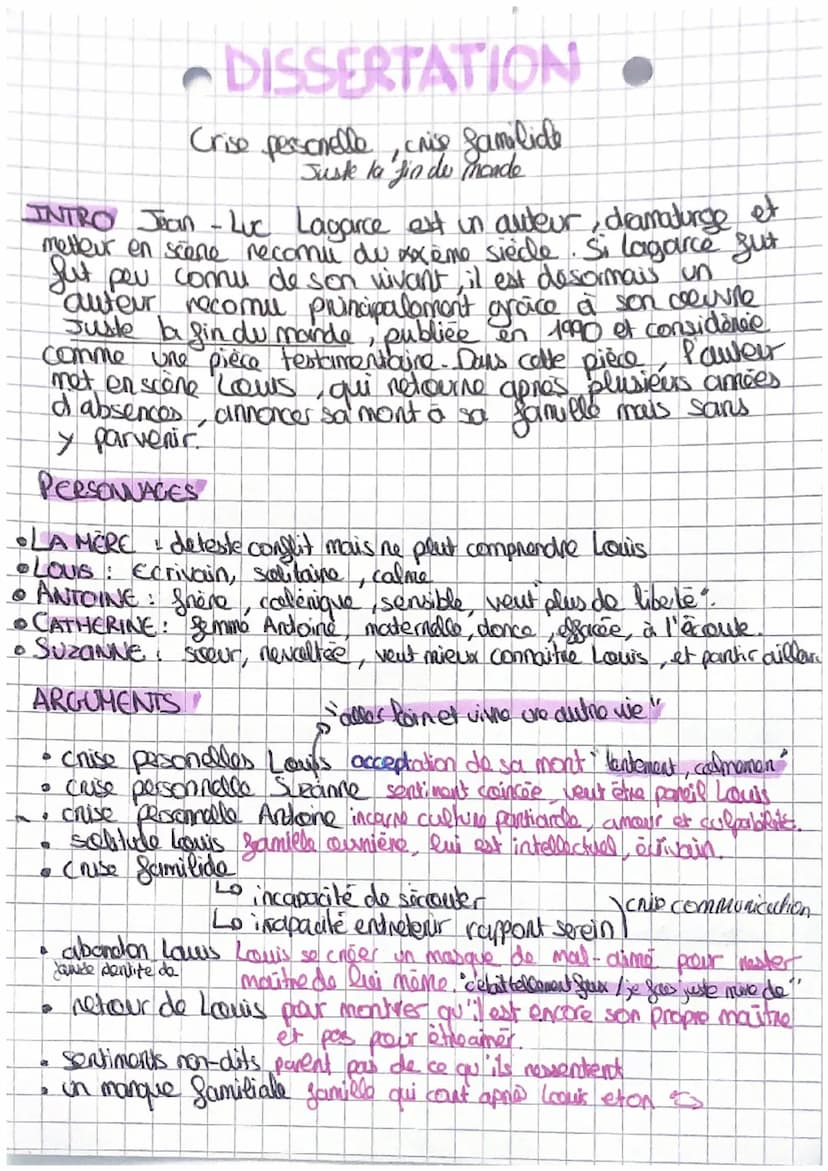 DISSERTATION
Crise personelle, crise familiale
Juste la fin du monde
INTRO Jean-Luc Lagarce est un auteur, dramaturge et
metteur en scène reconnu du xxème siècle. Si Lagarce fut
fut peu connu de son vivant, il est désormais un
auteur reconnu principalement grâce à son oeuvre
Juste la fin du monde, publiée en 1990 et considérée
comme une pièce testamentaire. Dans cette pièce, l'auteur
met en scène Louis, qui retourne après plusieurs années
d'absences, annoncer sa mort à sa famille mais sans
y parvenir.
PERSONNAGES
• LA MÈRE : deteste conflit mais ne peut comprendre Louis
• LOUIS : Ecrivain, solitaire, calme
• ANTOINE : frère, colérique, sensible, veut "plus de liberté".
• CATHERINE : femme Antoine, maternelle, douce, effacée, à l'écoute.
• SUZANNE : soeur, révoltée, veut mieux connaitre Louis, et partir ailleurs
ARGUMENTS
"aller loin et vivre une autre vie"
• crise personelles Louis acceptation de sa mort "lentement, calmement"
• crise personnelle Suzanne sentiment coincée, veut être pareil Louis
• crise personnelle Antoine incarne culture, amour et culpabilité.
• solitude Louis famille ouvrière, lui est intellectuel, écrivain.
• crise familiale
↳ incapacité de s'écouter
↳ incapacité entretenir rapport serein
crise communication
• abandon Louis Louis se créer un masque de mal-aimé pour rester
maître de lui même.
• retour de Louis par montrer qu'il est encore son propre maître
et pas pour être aimer.
• sentiments non-dits parlent pas de ce qu'ils ressentent
• un manque familiale famille qui court après Louis et on